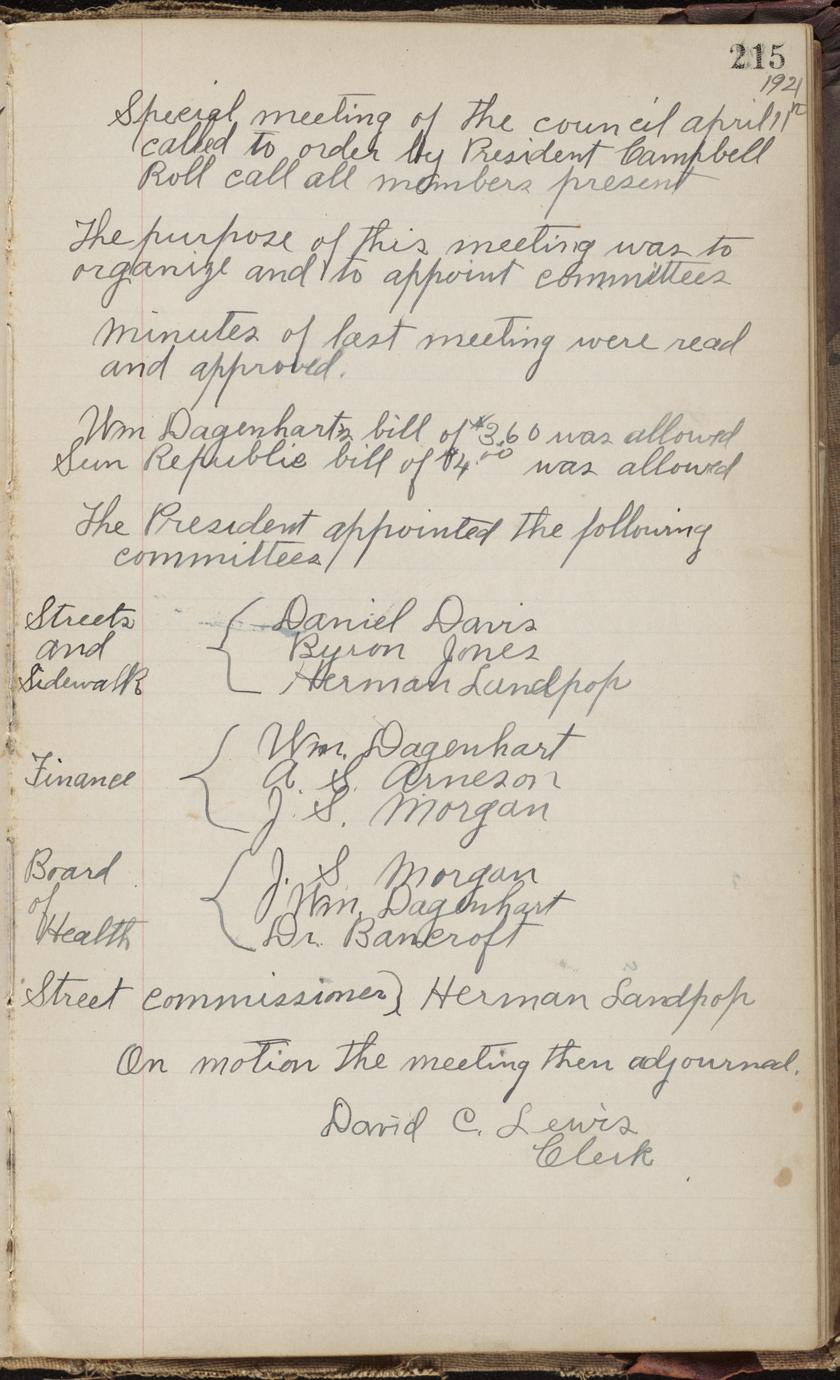 215
1921
Special meeting of the council april 11th
called to order by President Campbell
Roll call all members present
The purpose of this meeting was to
organize and to appoint committees
minutes of last meeting were read
and approved.
Wm Dagenharts bill of $3.60 was allowed
Sun Republic bill of $4.00 was allowed
The President appointed the following
committees
Streets and Sidewalk { Daniel Davis
Byron Jones
Herman Sandpop
Finance { Wm. Dagenhart
A. S. Arneson
J. S. Morgan
Board of Health { J. S Morgan
Wm. Dagenhart
Dr. Bancroft
Street commissioner } Herman Sandpop
On motion the meeting then adjournal.
David C. Lewis
Clerk